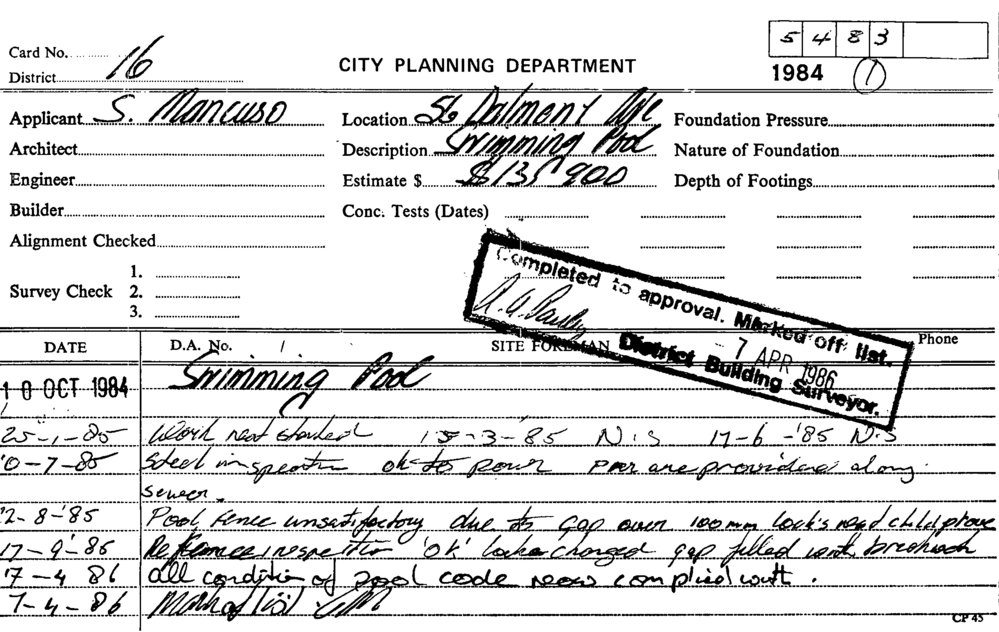 5 4 8 3
Card No. 16
District
CITY PLANNING DEPARTMENT
1984 1
Applicant S. Mancuso Location 56 Dalmeny Ave Foundation Pressure
Architect Description Swimming Pool Nature of Foundation
Engineer Estimate $ $13,900 Depth of Footings
Builder Conc. Tests (Dates)
Alignment Checked
1.
Survey Check 2.
3.
Completed to approval. Marked off list.
- 7 APR 1986
District Building Surveyor.
DATE D.A. No. SITE FOREMAN Phone
10 OCT 1984 Swimming Pool
25-1-85 Work not started 15-3-'85 N.S 17-6-'85 N.S
0-7-85 Steel inspection ok to pour along
sewer.
2-8-'85 Pool fence unsatisfactory due to gap over 100mm lock's need child
17-9-'85 inspection 'OK' changed gap filled with
7-4 86 all condition of pool code now complied with.
7-4-86
CP 45